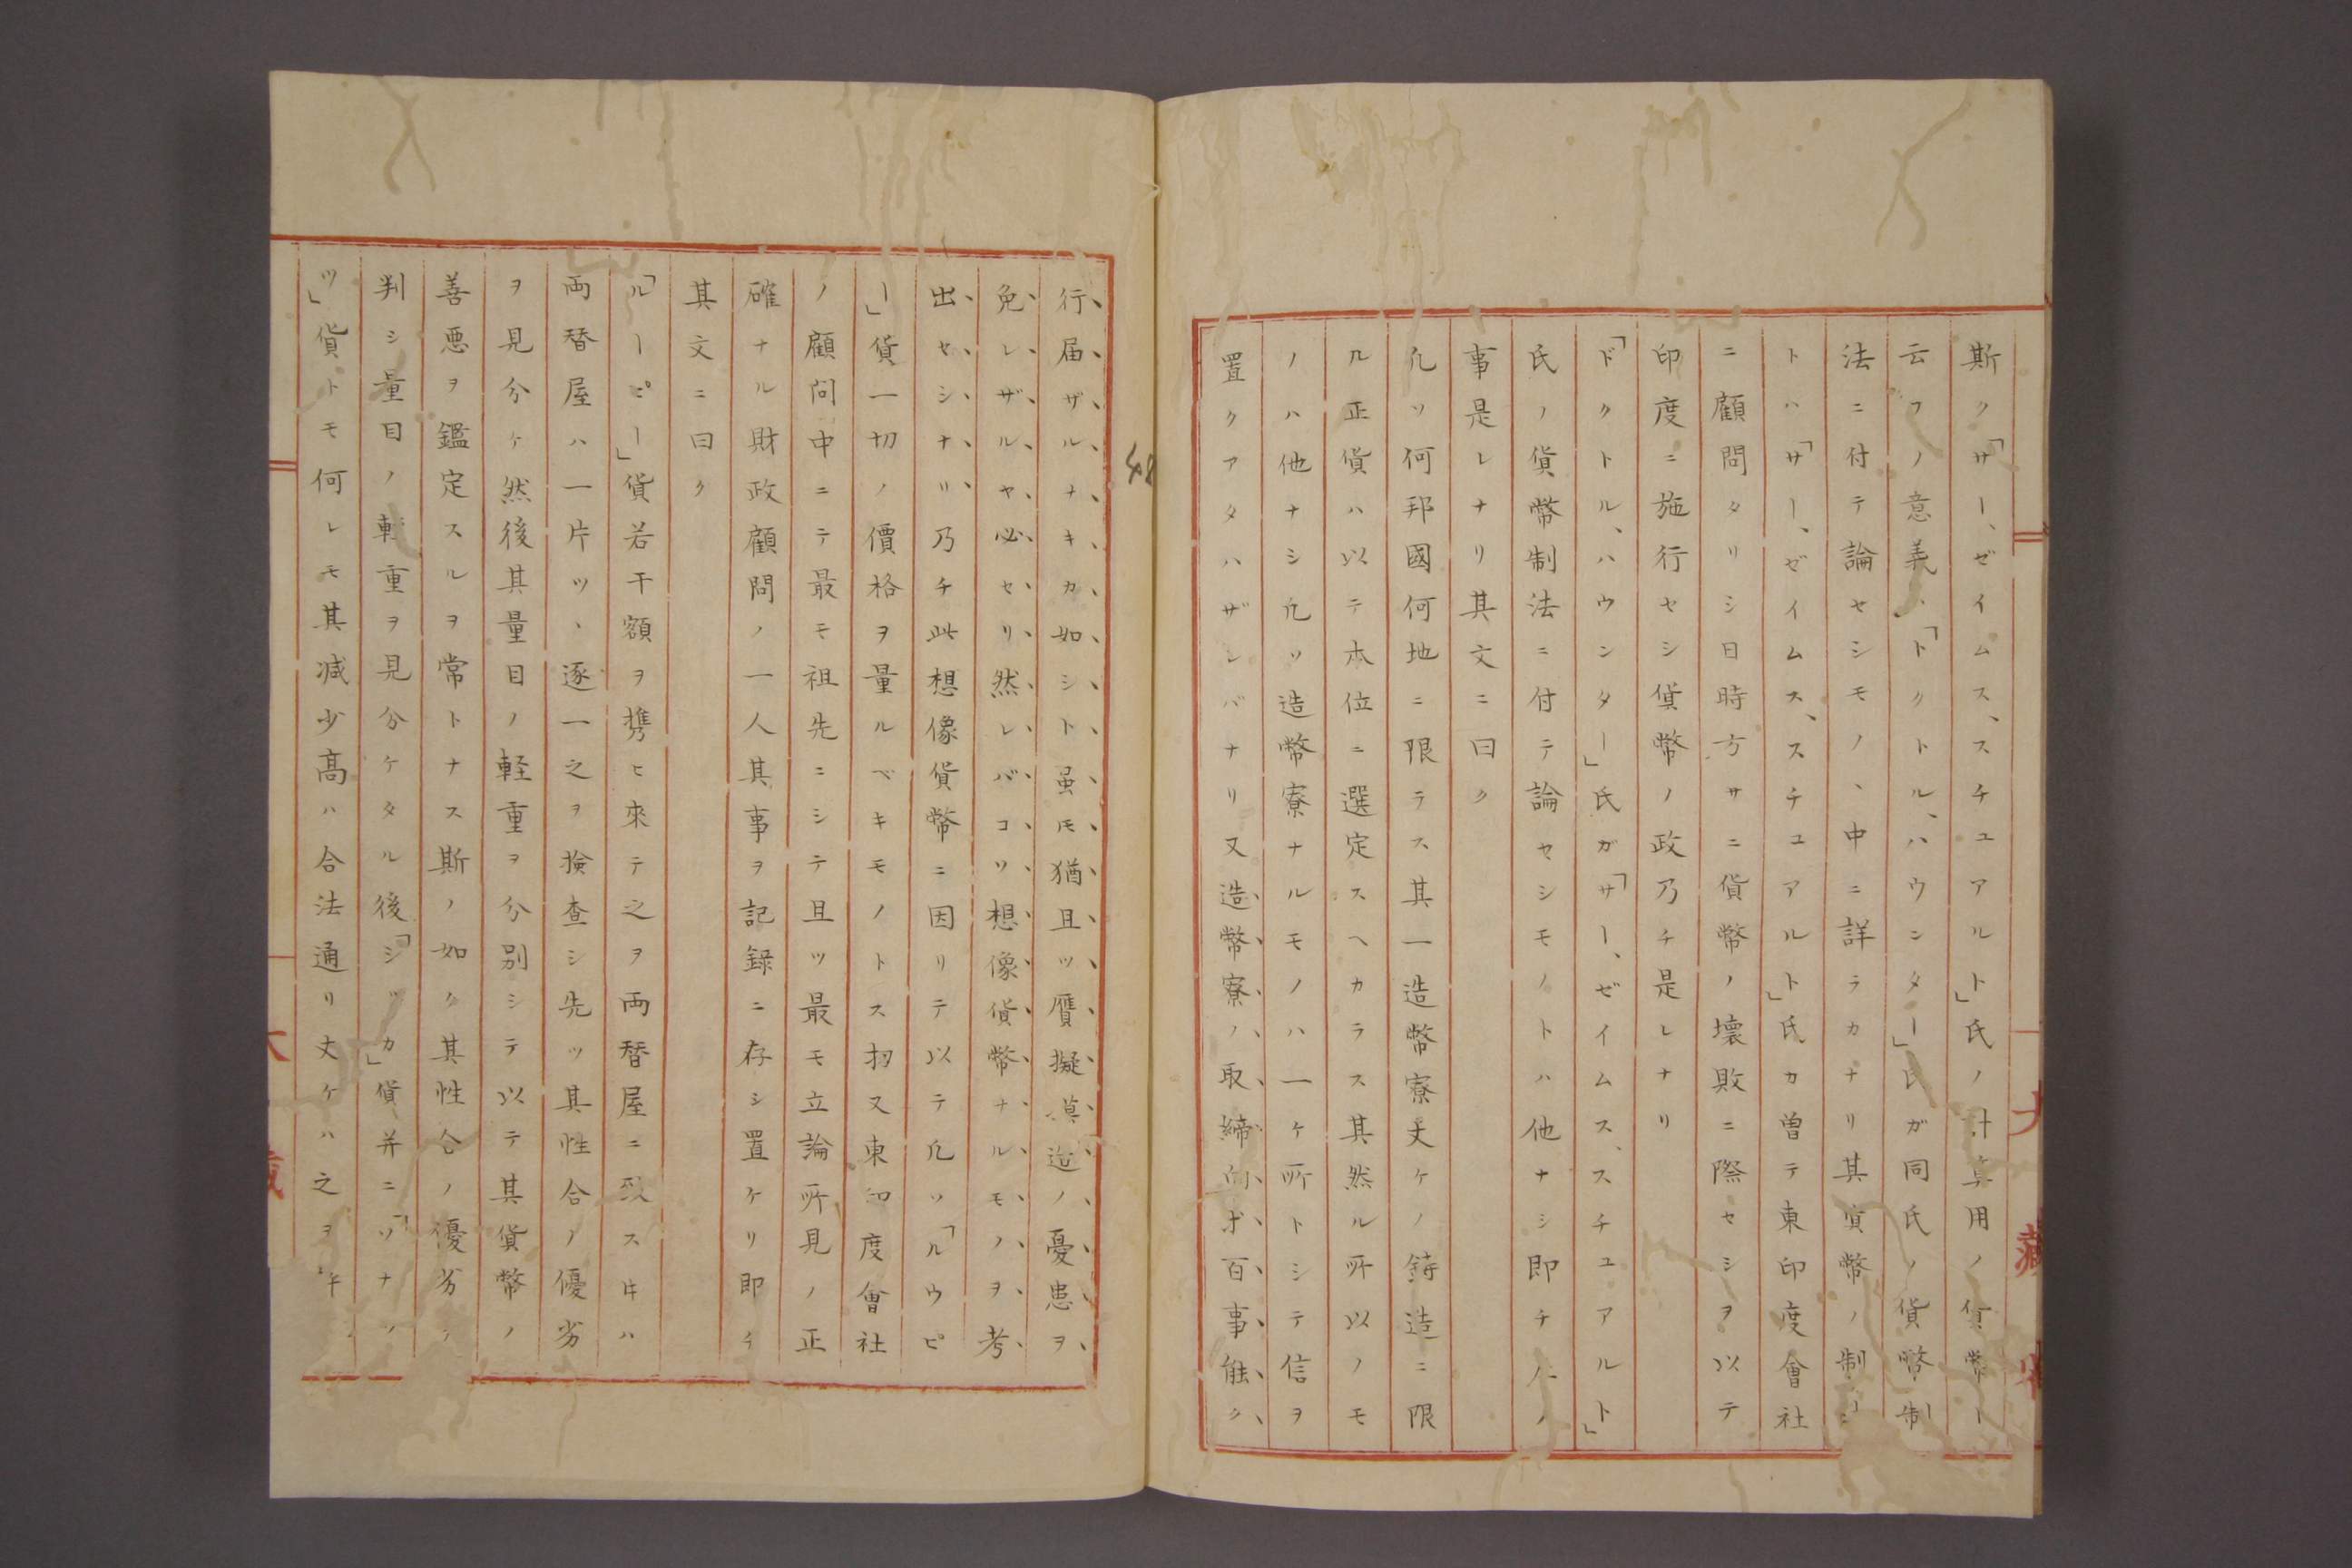 斯ク「サー、ゼイムス、スチュアルト」氏ノ計算用ノ貨幣ト
云フノ意義ハ「ドクトル、ハウンター」氏ガ同氏ノ貨幣制
法ニ付テ論セシモノヽ中ニ詳ラカナリ其貨幣ノ制
トハ「サー、ゼイムス、スチュアルト」氏カ曽テ東印度會社
ニ顧問タリシ日時方サニ貨幣ノ壊敗ニ際セシヲ以テ
印度ニ施行セシ貨幣ノ政乃チ是レナリ
「ドクトル、ハウンター」氏ガ「サー、ゼイムス、スチュアルト」
氏ノ貨幣制法ニ付テ論セシモノトハ他ナシ即チ
事是レナリ其文ニ曰ク
凢ソ何邦國何地ニ限ラス其一造幣寮丈ケノ鋳造ニ限
ル正貨ハ以テ本位ニ選定スヘカラス其然ル所以ノモ
ノハ他ナシ凢ソ造幣寮ナルモノハ一ケ所トシテ信ヲ
置クアタハザレバナリ又造幣寮ノ取締向ギ百事能ク
48
行届ザルナキカ如シト虽モ猶且ツ贋擬摸造ノ憂患ヲ
免レザルヤ必セリ然レバコソ想像貨幣ナルモノヲ考
出セシナリ乃チ此想像貨幣ニ因リテ以テ凢ソ「ルウピ
ー」貨一切ノ價格ヲ量ルベキモノトス扨又東印度會社
ノ顧問中ニテ最モ祖先ニシテ且ツ最モ立論所見ノ正
確ナル財政顧問ノ一人其事ヲ記録ニ存シ置ケリ即チ
其文ニ曰ク
「ルーピー」貨若干額ヲ携ヒ來テ之ヲ両替屋ニ致ス时ハ
両替屋ハ一片ツヽ逐一之ヲ撿查シ先ツ其性合ノ優劣
ヲ見分ケ然後其量目ノ軽重ヲ分別シテ以テ其貨幣ノ
善悪ヲ鑑定スルヲ常トナス斯ノ如ク其性合ノ優劣ヲ
判シ量目ノ軽重ヲ見分ケタル後「シッカ」貨并ニ「ソナ
ツ」貨トモ何レモ其减少高ハ合法通リ丈ケハ之ヲ
大藏省